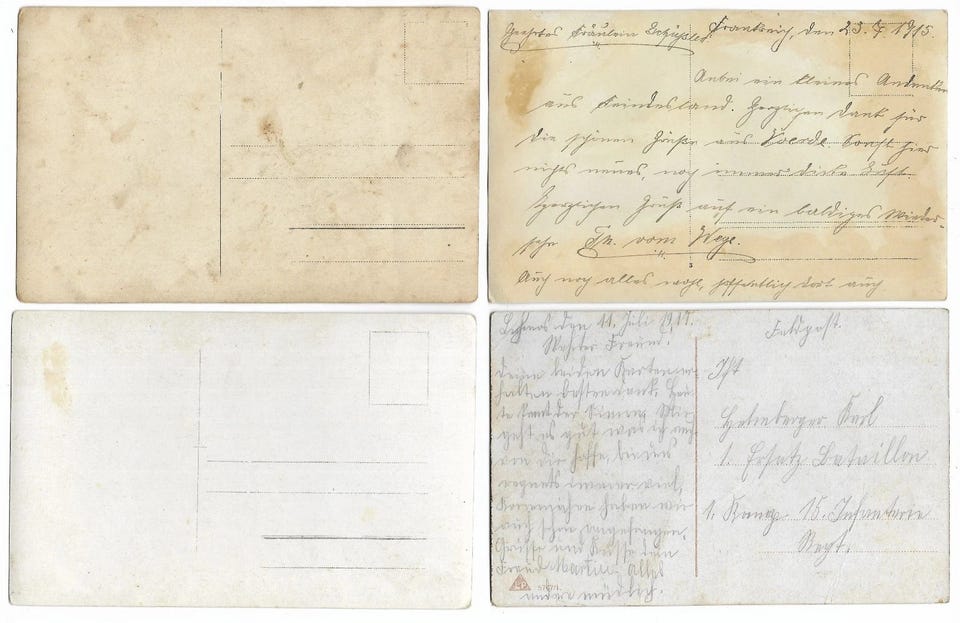 Geehrtes Fräulein Schüssler Frankreich, den 23.7.1915.
Anbei ein kleines Andenken
aus Feindesland. Herzlichen Dank für
die schönen Grüße aus Voerde Sonst hier
nichts neues, noch immer dicke Luft.
Herzlichen Gruß auf ein baldiges Wieder-
sehn Th. vom Wege.
Auch noch alles wohl, hoffentlich dort auch
3
den 11. Juli 1917.
Werter Freund.
Deine beiden Karten er-
halten besten Dank.
geht es gut was ich auch
von dir hoffe, bei uns
regnets immer viel,
haben wir
auch schon angefangen.
Grüsse und Küsse dein
Freund Martin. Alles
andere mündlich.
Feldpost.
Karl
1. Ersatz Bataillon
1. Komp. 15. Infanterie
Regt.